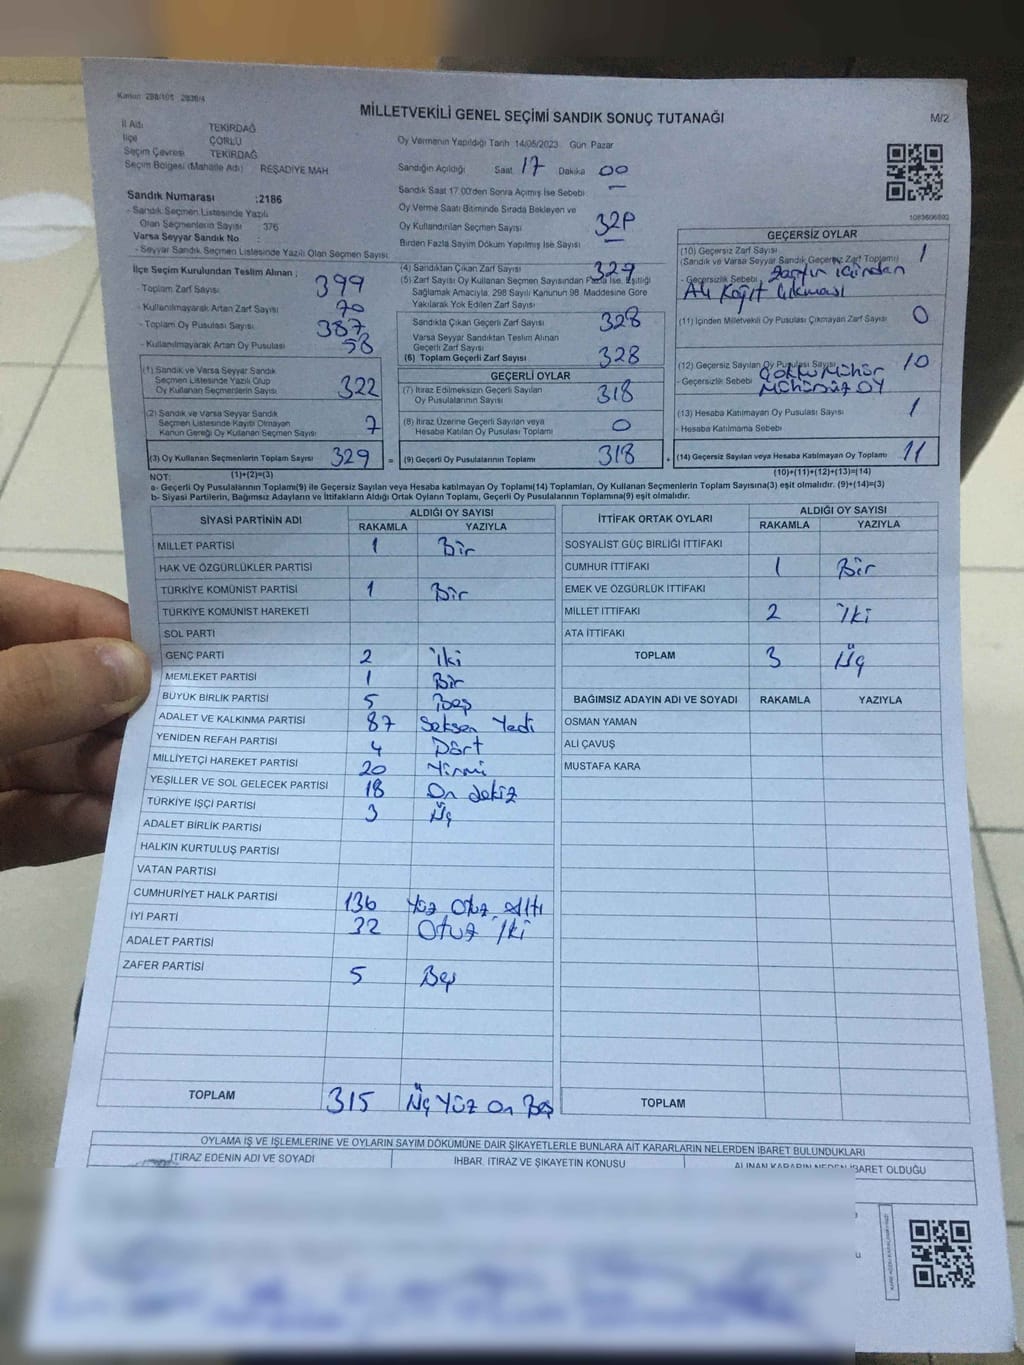 Kanun: 298/105 2839/4
MİLLETVEKİLİ GENEL SEÇİMİ SANDIK SONUÇ TUTANAĞI
M/2
İl Adı TEKİRDAĞ
İlçe ÇORLU
Seçim Çevresi TEKİRDAĞ
Seçim Bölgesi (Mahalle Adı) REŞADİYE MAH
Sandık Numarası :2186
- Sandık Seçmen Listesinde Yazılı
Olan Seçmenlerin Sayısı 376
Varsa Seyyar Sandık No :
- Seyyar Sandık Seçmen Listesinde Yazılı Olan Seçmen Sayısı
Oy Vermenin Yapıldığı Tarih 14/05/2023 Gün Pazar
Sandığın Açıldığı Saat 17 Dakika 00
Sandık Saat 17.00'den Sonra Açılmış İse Sebebi —
Oy Verme Saati Bitiminde Sırada Bekleyen ve
Oy Kullandırılan Seçmen Sayısı
Birden Fazla Sayım Döküm Yapılmış İse Sayısı —
1083606802
İlçe Seçim Kurulundan Teslim Alınan ;
- Toplam Zarf Sayısı 399
- Kullanılmayarak Artan Zarf Sayısı 70
- Toplam Oy Pusulası Sayısı 387
- Kullanılmayarak Artan Oy Pusulası 58
(1) Sandık ve Varsa Seyyar Sandık
Seçmen Listesinde Yazılı Olup
Oy Kullanan Seçmenlerin Sayısı 322
(2) Sandık ve Varsa Seyyar Sandık
Seçmen Listesinde Kayıtlı Olmayan
Kanun Gereği Oy Kullanan Seçmen Sayısı 7
(3) Oy Kullanan Seçmenlerin Toplam Sayısı 329
(1)+(2)=(3)
(4) Sandıktan Çıkan Zarf Sayısı 329
(5) Zarf Sayısı Oy Kullanan Seçmen Sayısından Fazla İse, Eşitliği
Sağlamak Amacıyla, 298 Sayılı Kanunun 98. Maddesine Göre
Yakılarak Yok Edilen Zarf Sayısı
Sandıkta Çıkan Geçerli Zarf Sayısı 328
Varsa Seyyar Sandıktan Teslim Alınan
Geçerli Zarf Sayısı
(6) Toplam Geçerli Zarf Sayısı 328
GEÇERLİ OYLAR
(7) İtiraz Edilmeksizin Geçerli Sayılan
Oy Pusulalarının Sayısı 318
(8) İtiraz Üzerine Geçerli Sayılan veya
Hesaba Katılan Oy Pusulası Toplamı 0
= (9) Geçerli Oy Pusulalarının Toplamı 318
GEÇERSİZ OYLAR
(10) Geçersiz Zarf Sayısı 1
(Sandık ve Varsa Seyyar Sandık Geçersiz Zarf Toplamı)
- Geçersizlik Sebebi Zarfın içinden
Alı Kağıt Çıkması
(11) İçinden Milletvekili Oy Pusulası Çıkmayan Zarf Sayısı 0
(12) Geçersiz Sayılan Oy Pusulası Sayısı 10
- Geçersizlik Sebebi Çoklu Mühür
Mühürsüz OY
(13) Hesaba Katılmayan Oy Pusulası Sayısı 1
- Hesaba Katılmama Sebebi
+ (14) Geçersiz Sayılan veya Hesaba Katılmayan Oy Toplamı 11
(10)+(11)+(12)+(13)=(14)
NOT:
a- Geçerli Oy Pusulalarının Toplamı(9) ile Geçersiz Sayılan veya Hesaba katılmayan Oy Toplamı(14) Toplamları, Oy Kullanan Seçmenlerin Toplam Sayısına(3) eşit olmalıdır. (9)+(14)=(3)
b- Siyasi Partilerin, Bağımsız Adayların ve İttifakların Aldığı Ortak Oyların Toplamı, Geçerli Oy Pusulalarının Toplamına(9) eşit olmalıdır.
SİYASİ PARTİNİN ADI ALDIĞI OY SAYISI
RAKAMLA YAZIYLA
MİLLET PARTİSİ 1 Bir
HAK VE ÖZGÜRLÜKLER PARTİSİ
TÜRKİYE KOMÜNİST PARTİSİ 1 Bir
TÜRKİYE KOMÜNİST HAREKETİ
SOL PARTİ
GENÇ PARTİ 2 İki
MEMLEKET PARTİSİ 1 Bir
BÜYÜK BİRLİK PARTİSİ 5 Beş
ADALET VE KALKINMA PARTİSİ 87 Seksen Yedi
YENİDEN REFAH PARTİSİ 4 Dört
MİLLİYETÇİ HAREKET PARTİSİ 20 Yirmi
YEŞİLLER VE SOL GELECEK PARTİSİ 18 On sekiz
TÜRKİYE İŞÇİ PARTİSİ 3 Üç
ADALET BİRLİK PARTİSİ
HALKIN KURTULUŞ PARTİSİ
VATAN PARTİSİ
CUMHURİYET HALK PARTİSİ 136 Yüz Otuz Altı
İYİ PARTİ 32 Otuz İki
ADALET PARTİSİ
ZAFER PARTİSİ 5 Beş
TOPLAM 315 Üç Yüz On Beş
İTTİFAK ORTAK OYLARI ALDIĞI OY SAYISI
RAKAMLA YAZIYLA
SOSYALİST GÜÇ BİRLİĞİ İTTİFAKI
CUMHUR İTTİFAKI 1 Bir
EMEK VE ÖZGÜRLÜK İTTİFAKI
MİLLET İTTİFAKI 2 İki
ATA İTTİFAKI
TOPLAM 3 Üç
BAĞIMSIZ ADAYIN ADI VE SOYADI RAKAMLA YAZIYLA
OSMAN YAMAN
ALİ ÇAVUŞ
MUSTAFA KARA
TOPLAM
OYLAMA İŞ VE İŞLEMLERİNE VE OYLARIN SAYIM DÖKÜMÜNE DAİR ŞİKAYETLERLE BUNLARA AİT KARARLARIN NELERDEN İBARET BULUNDUKLARI
İTİRAZ EDENİN ADI VE SOYADI İHBAR, İTİRAZ VE ŞİKAYETİN KONUSU ALINAN KARARIN NEDEN İBARET OLDUĞU